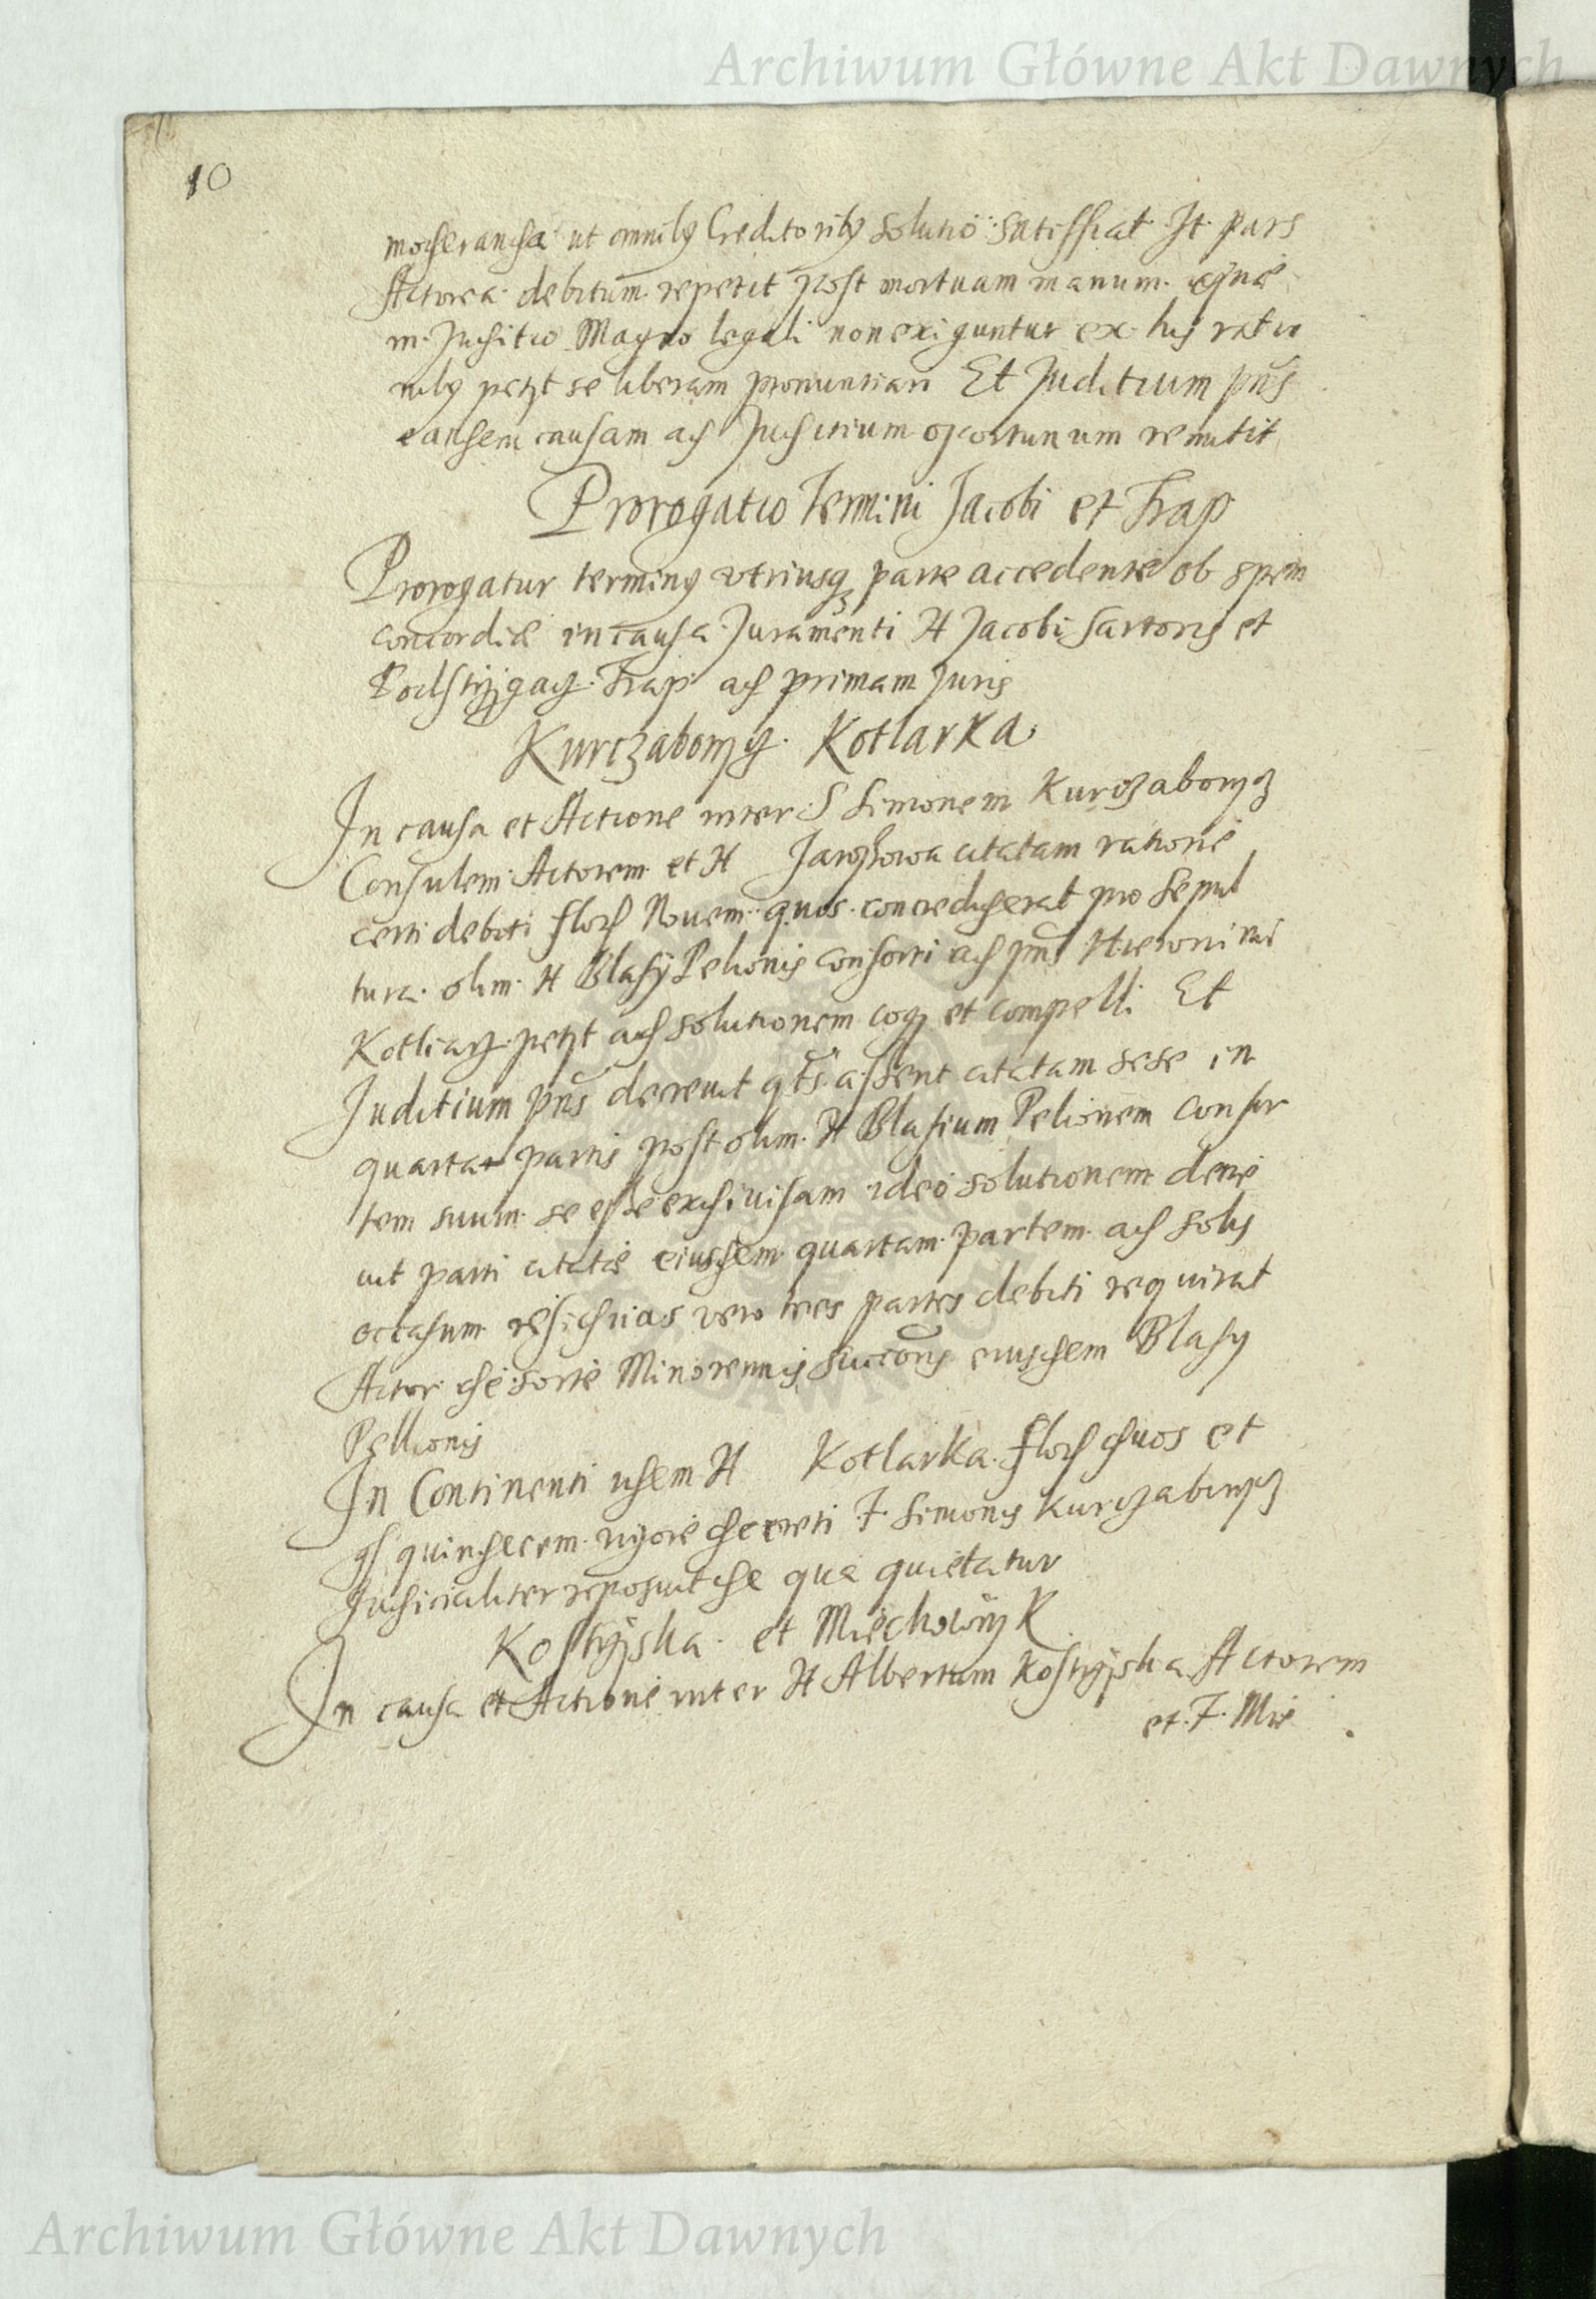 Archiwum Główne Akt Dawnych
10
moderanda ut omnibꝯ Creditoribꝯ solutio satisfiat It pars
Actorea debitum repetit post mortuam manum quae
in Juditio Magno legali non exiguntur ex his ratio
nibꝯ petyt se liberam pronuntiari Et Juditium pn̄s
eandem causam ad Juditium oportunum remittit
Prorogatio Termini Jacobi et Frap
Prorogatur terminꝯ utriusqꝫ parte accedente ob spem
concordiae in causa Juramenti H Jacobi Sartoris et
Frap ad primam Juris
Kotlarka
In causa et Actione inter S Simonem
Consulem Actorem et H citatam ratione
certi debiti flor Novem quos concrediderat pro sepul
tura olim H Blasÿ Pelionis consorti ad pn̄s Hieronimi
petyt ad solutionem cogi et compelli Et
Juditium pn̄s decrevit citatam sese in
quarta partis post olim H Blasium Pelionem consor
tem suum se esse exdivisam ideo solutionem decre
vit parti citatae eiusdem quartam partem ad solis
occasum residuas vero tres partes debiti requirat
Actor de sorte Minorennis eiusdem Blasÿ
Pellionis
In Continenti idem H Kotlarka flor duos et
gr quindecem vigore decreti F Simonis
Judicialiter reposuit de qua quietatur
et
In causa et Actione inter H Albertum Actorem
et F Mie
Archiwum Główne Akt Dawnych